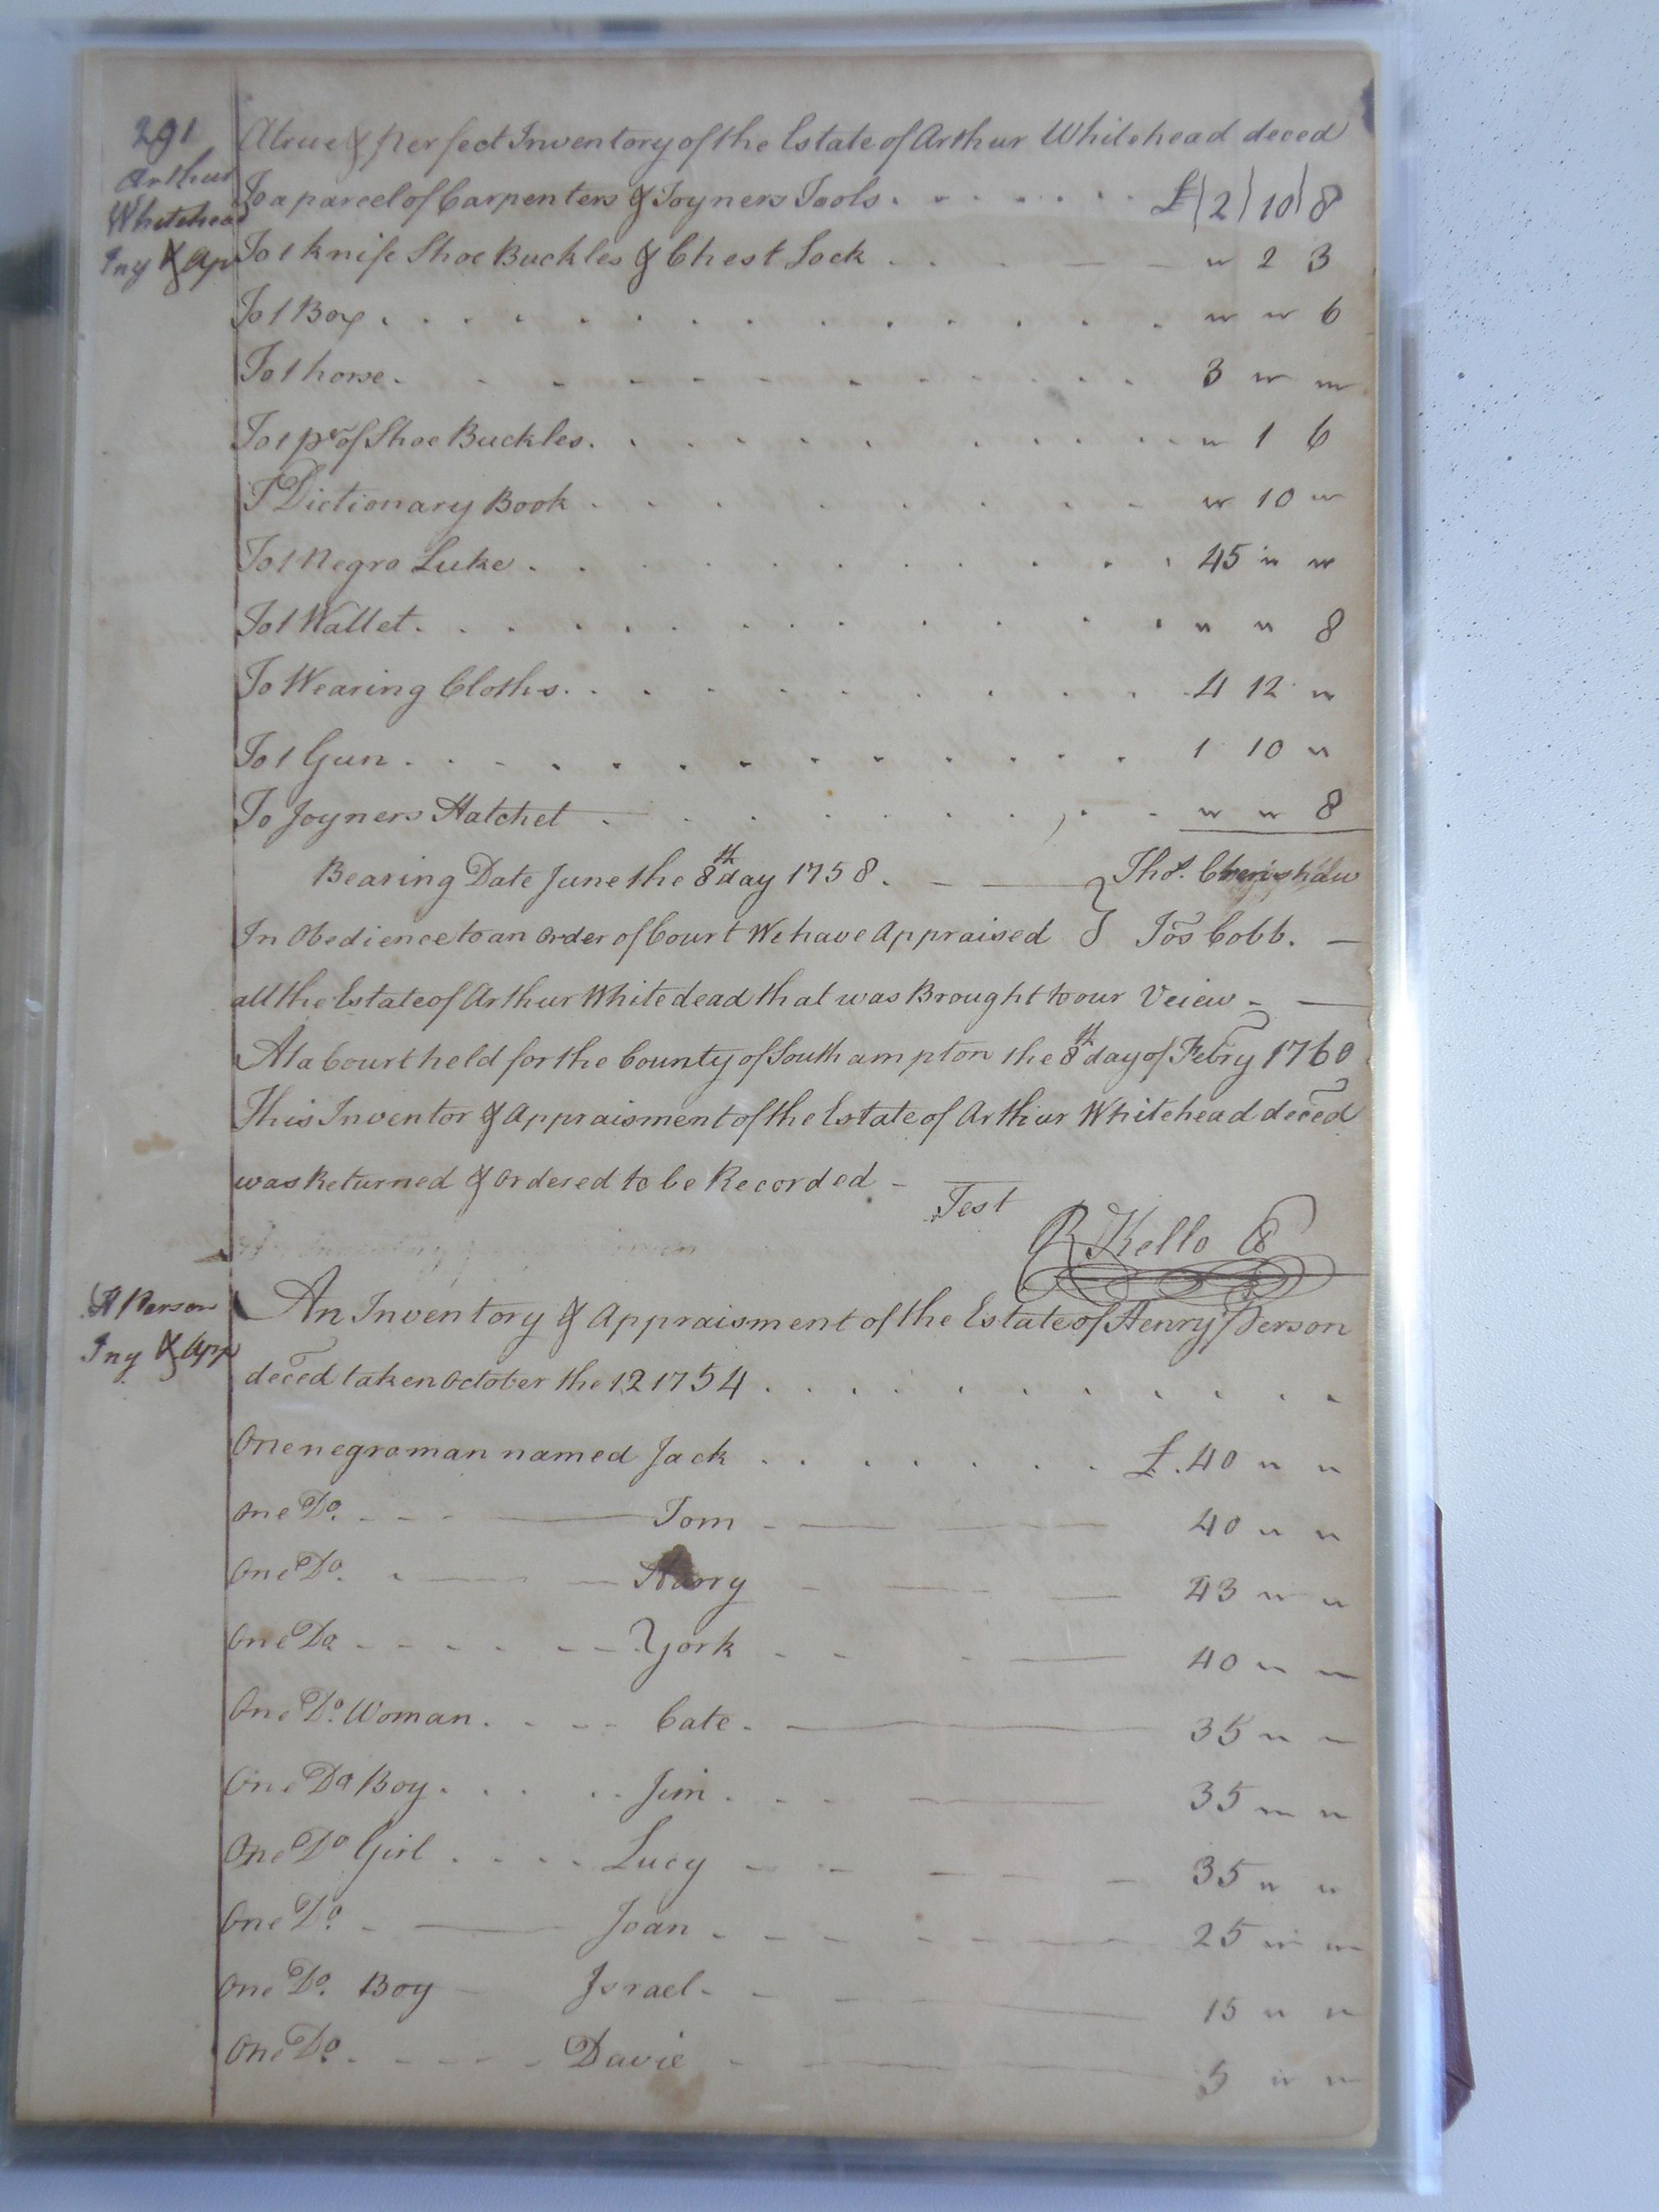 291
Arthur
Whitehead
Iny & Ap
A true & perfect Inventory of the Estate of Arthur Whitehead deced
To a parcel of Carpenters & Joyners Tools . . . . . . £ | 2 | 10 | 8
To 1 Knife Shoe Buckles & Chest Lock . . . - - " 2 3
To 1 Box . . . . . . . . . . . . . " " 6
To 1 horse . . . . . . . . . . . . 3 " "
To 1 pr of Shoe Buckles . . . . . . . . . " 1 6
T Dictionary Book . . . . . . . . " 10 "
To 1 Negro Luke . . . . . . . . . 45 " "
To 1 Wallet . . . . . . . . . . . " " 8
To Wearing Cloths . . . . . . . . . 4 12 "
To 1 Gun . . . . . . . . . . . . 1 10 "
To Joyners Hatchet . . . . . . . . . " " 8
Bearing Date June the 8th day 1758 . - — Thos.
In Obedience to an order of Court We have Appraised } Jos Cobb. —
all the Estate of Arthur Whitedead that was Brought to our Veiew - —
At a Court held for the County of Southampton the 8th day of Febry 1760
This Inventor & Appraisment of the Estate of Arthur Whitehead deced
was Returned & ordered to be Recorded -
Test
R Kello C
H Person
Iny & App
An Inventory & Appraisment of the Estate of Henry Person
deced taken October the 12 1754 . . . . . . . . . .
One negro man named Jack . . . . . . . £ . 40 " "
One Do. - - - — Tom - — — 40 " "
One Do. - — — Harry - — — 43 " "
One Do - - - - - - York - - - — 40 " "
One Do. Woman . - - - Cate . — 35 " "
One Do Boy . . . . Jim . - - — 35 " "
One Do Girl . . . . Lucy - - — — - 35 " "
One Do. - — Joan - - - - — - 25 " "
One Do. Boy - Israel - - — — 15 " "
One Do. - - - - - Davie - — 5 " "